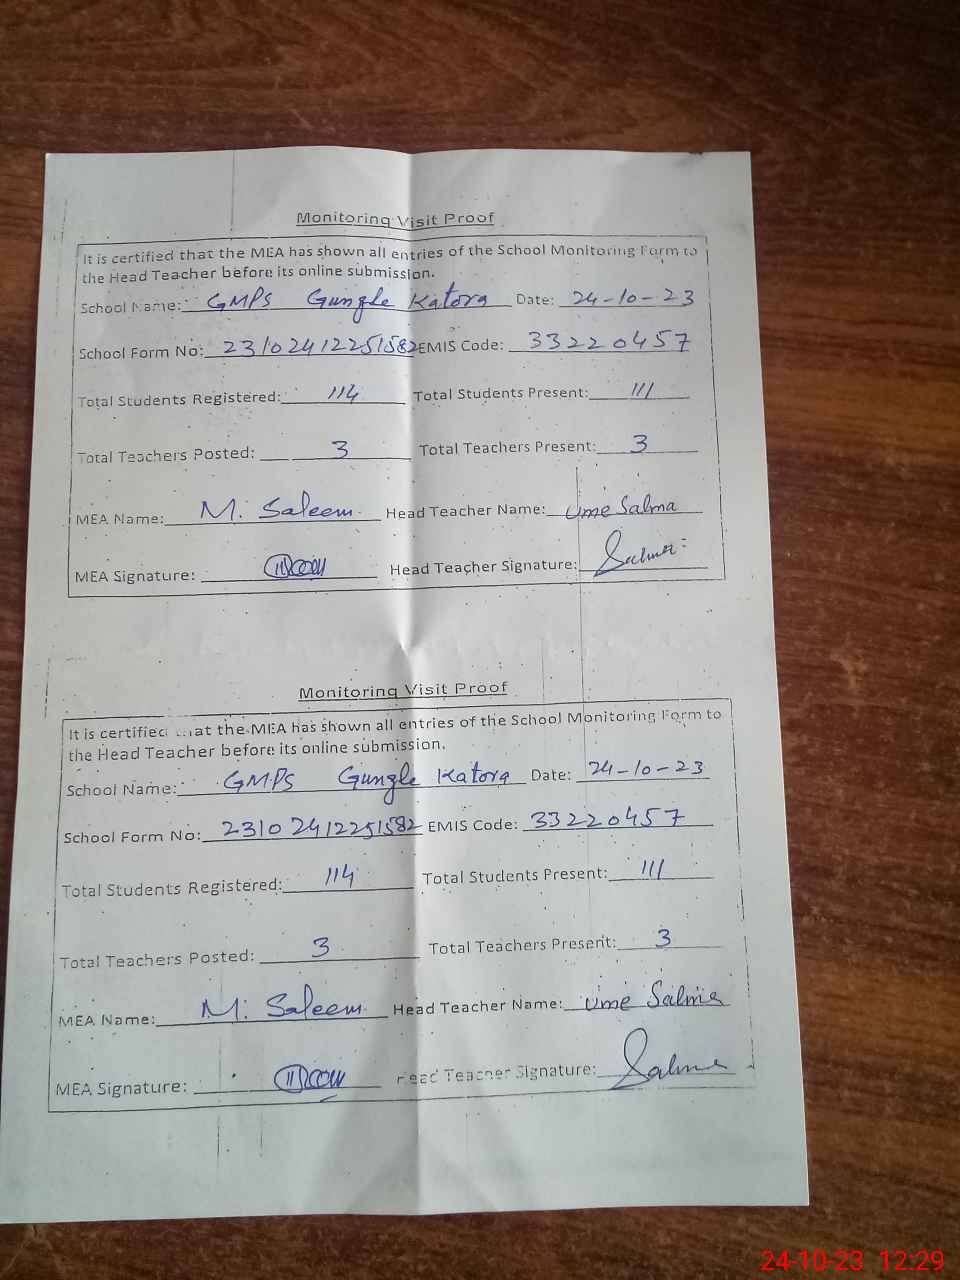 Monitoring Visit Proof
It is certified that the MEA has shown all entries of the School Monitoring Form to
the Head Teacher before its online submission.
School Name: GMPS Gungle Katora Date: 24-10-23
School Form No: 23102412251582 EMIS Code: 33220457
Total Students Registered: 114 Total Students Present: 111
Total Teachers Posted: 3 Total Teachers Present: 3
MEA Name: M. Saleem Head Teacher Name: Ume Salma
MEA Signature: Head Teacher Signature: Salma
Monitoring Visit Proof
It is certified that the MEA has shown all entries of the School Monitoring Form to
the Head Teacher before its online submission.
School Name: GMPS Gungle Katora Date: 24-10-23
School Form No: 23102412251582 EMIS Code: 33220457
Total Students Registered: 114 Total Students Present: 111
Total Teachers Posted: 3 Total Teachers Present: 3
MEA Name: M. Saleem Head Teacher Name: Ume Salma
MEA Signature: Head Teacher Signature: Salma
24-10-23 12:29